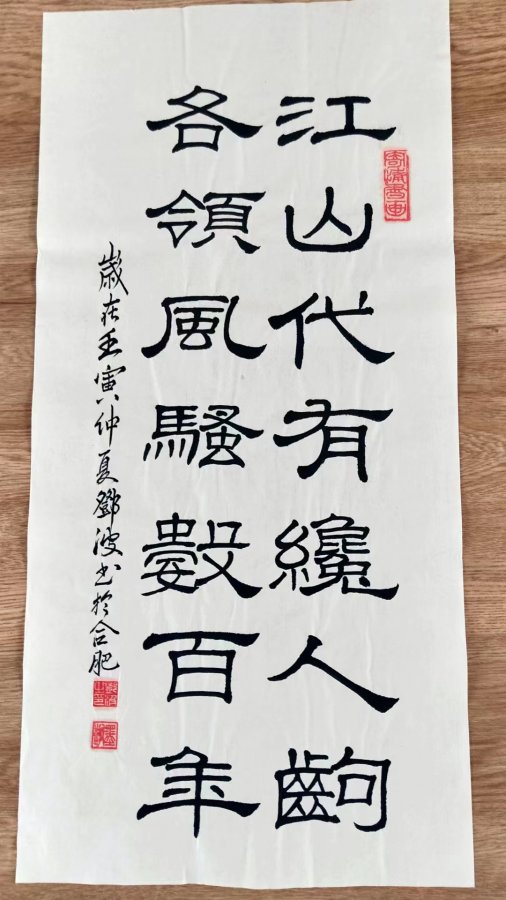 江山代有纔人齣
各領風騷數百年
歲在壬寅仲夏鄧波书於合肥